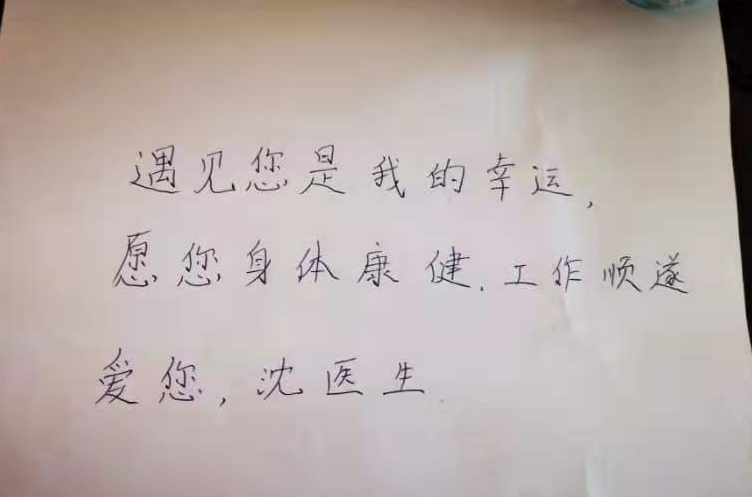 遇见您是我的幸运,
愿您身体康健.工作顺遂
爱您,沈医生